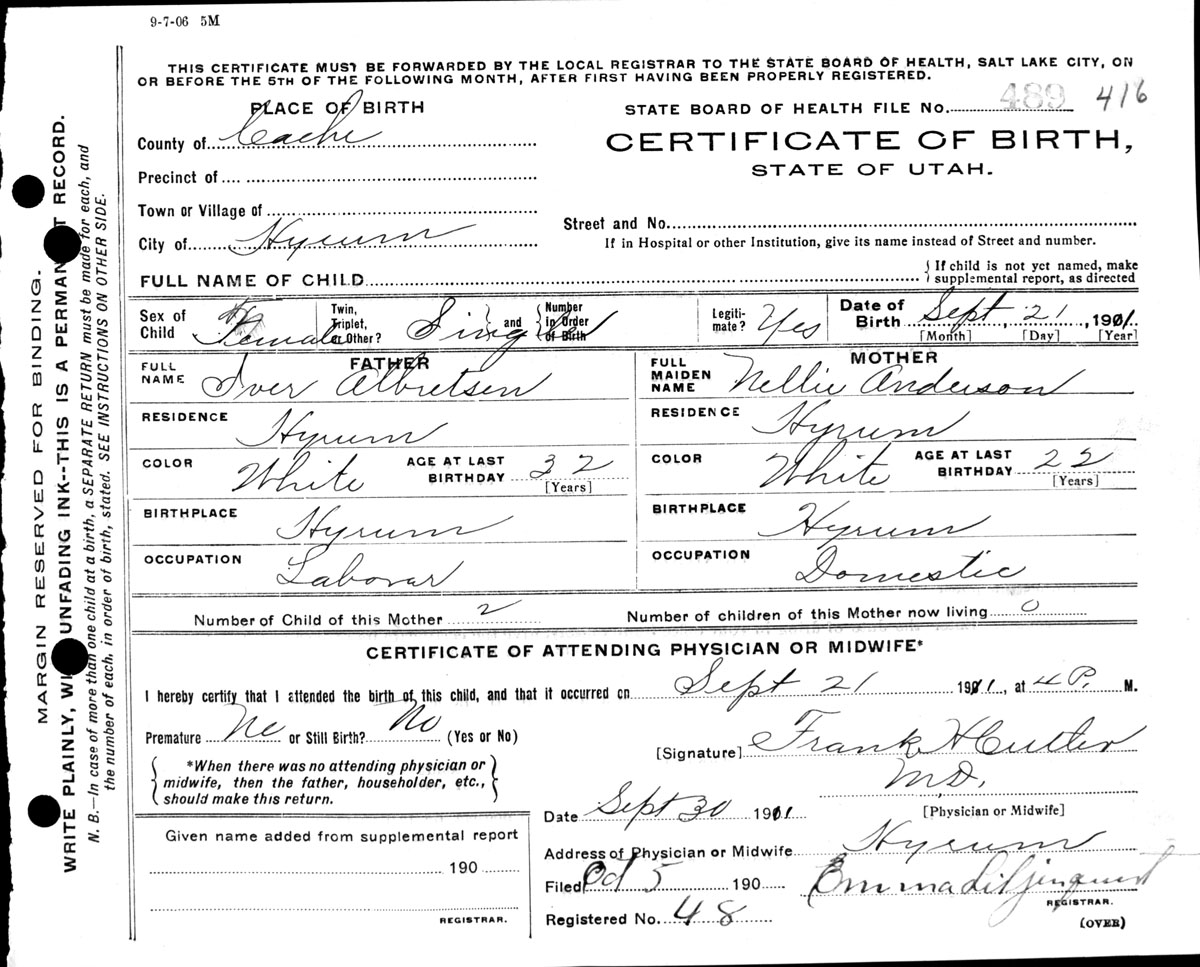 9-7-06 5M
THIS CERTIFICATE MUST BE FORWARDED BY THE LOCAL REGISTRAR TO THE STATE BOARD OF HEALTH, SALT LAKE CITY, ON
OR BEFORE THE 5TH OF THE FOLLOWING MONTH, AFTER FIRST HAVING BEEN PROPERLY REGISTERED.
PLACE OF BIRTH
STATE BOARD OF HEALTH FILE No. 489 416
County of Cache
CERTIFICATE OF BIRTH,
STATE OF UTAH.
Precinct of
Town or Village of
Street and No.
City of Hyrum
If in Hospital or other Institution, give its name instead of Street and number.
FULL NAME OF CHILD
{ If child is not yet named, make
supplemental report, as directed
Sex of Child Female
Twin, Triplet, or Other? Single
and
Number in Order of Birth
Legiti-mate? Yes
Date of Birth Sept 21, 1911.
[Month] [Day] [Year]
FATHER
FULL NAME Iver Albretsen
MOTHER
FULL MAIDEN NAME Nellie Anderson
RESIDENCE Hyrum
RESIDENCE Hyrum
COLOR White AGE AT LAST BIRTHDAY 32 [Years]
COLOR White AGE AT LAST BIRTHDAY 22 [Years]
BIRTHPLACE Hyrum
BIRTHPLACE Hyrum
OCCUPATION Laborar
OCCUPATION Domestic
Number of Child of this Mother 2
Number of children of this Mother now living 0
CERTIFICATE OF ATTENDING PHYSICIAN OR MIDWIFE*
I hereby certify that I attended the birth of this child, and that it occurred on Sept 21 1911, at 4 P. M.
Premature No or Still Birth? No (Yes or No)
[Signature] Frank H Cutler
M.D.
[Physician or Midwife]
*When there was no attending physician or
midwife, then the father, householder, etc.,
should make this return.
Date Sept 30 1911
Given name added from supplemental report
190
REGISTRAR.
Address of Physician or Midwife Hyrum
Filed Oct 5 190 Emma Liljenquist
REGISTRAR.
Registered No. 48
(OVER)
MARGIN RESERVED FOR BINDING.
WRITE PLAINLY, WI UNFADING INK--THIS IS A PERMAN T RECORD.
N. B.—In case of more than one child at a birth, a SEPARATE RETURN must be made for each, and
the number of each, in order of birth, stated. SEE INSTRUCTIONS ON OTHER SIDE.